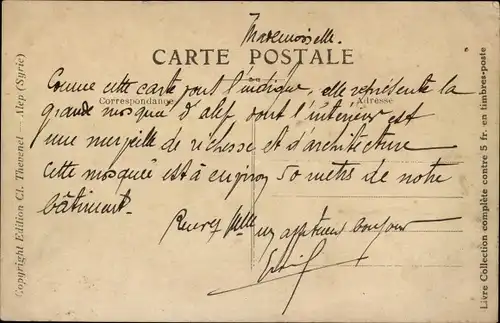 Mademoiselle.
CARTE POSTALE
Comme cette carte vous l'indique, elle représente la
Correspondance
Adresse
grande mosquée d'alep dont l'intérieur est
une merveille de richesse et d'architecture
Cette mosquée est à environ 50 metres de notre
bâtiment.
Recevez Mlle un affectueux bonjour
Copyright Edition Cl. Thevenet — Alep (Syrie)
Livre Collection complète contre 5 fr. en timbres-poste